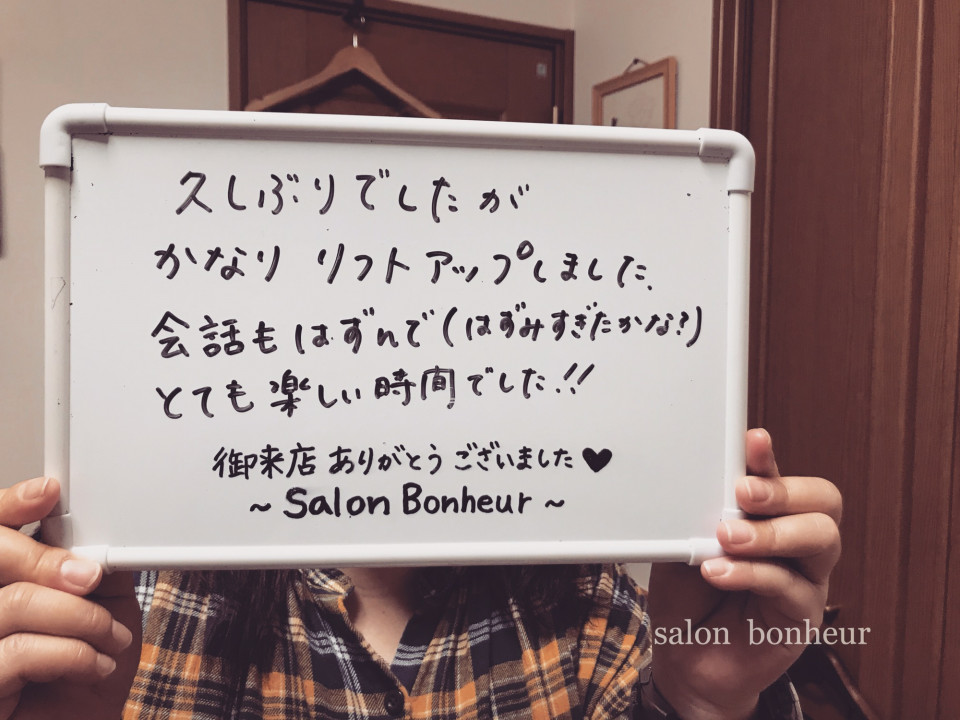 久しぶりでしたが
かなり リフトアップしました.
会話もはずんで(はずみすぎたかな?)
とても楽しい時間でした!!
御来店ありがとうございました♥
~ Salon Bonheur ~
salon bonheur